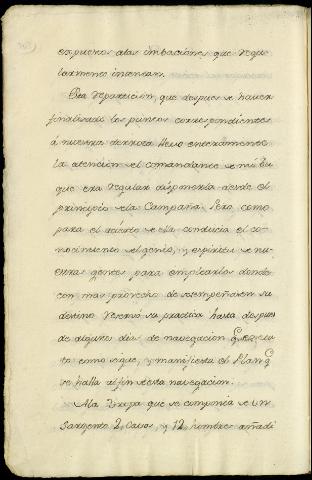 expuestos alas imbaciones que regu
larmente intentan.
Esta reparticion, que despues de haver
finalisado los puntos correspondientes
á nuestra derrota llevo enteramente
la atencion el comandante de mi Bu
que era regular disponerla desde el
principio de la Campaña. Pero como
para el acierto de ella conducia el co-
nocimiento el genio, y espiritu de nu-
estras gentes para emplearlos donde
con mas provecho desempeñasen su
destino reservó su practica hasta despues
de algunos dias de navegacion
to como sigue, y manifiesta el Plan q
se halla al fin de esta navegacion.
Ala Tropa que se componia de un
Sargento 2 Cavos, y 12 hombres añadi